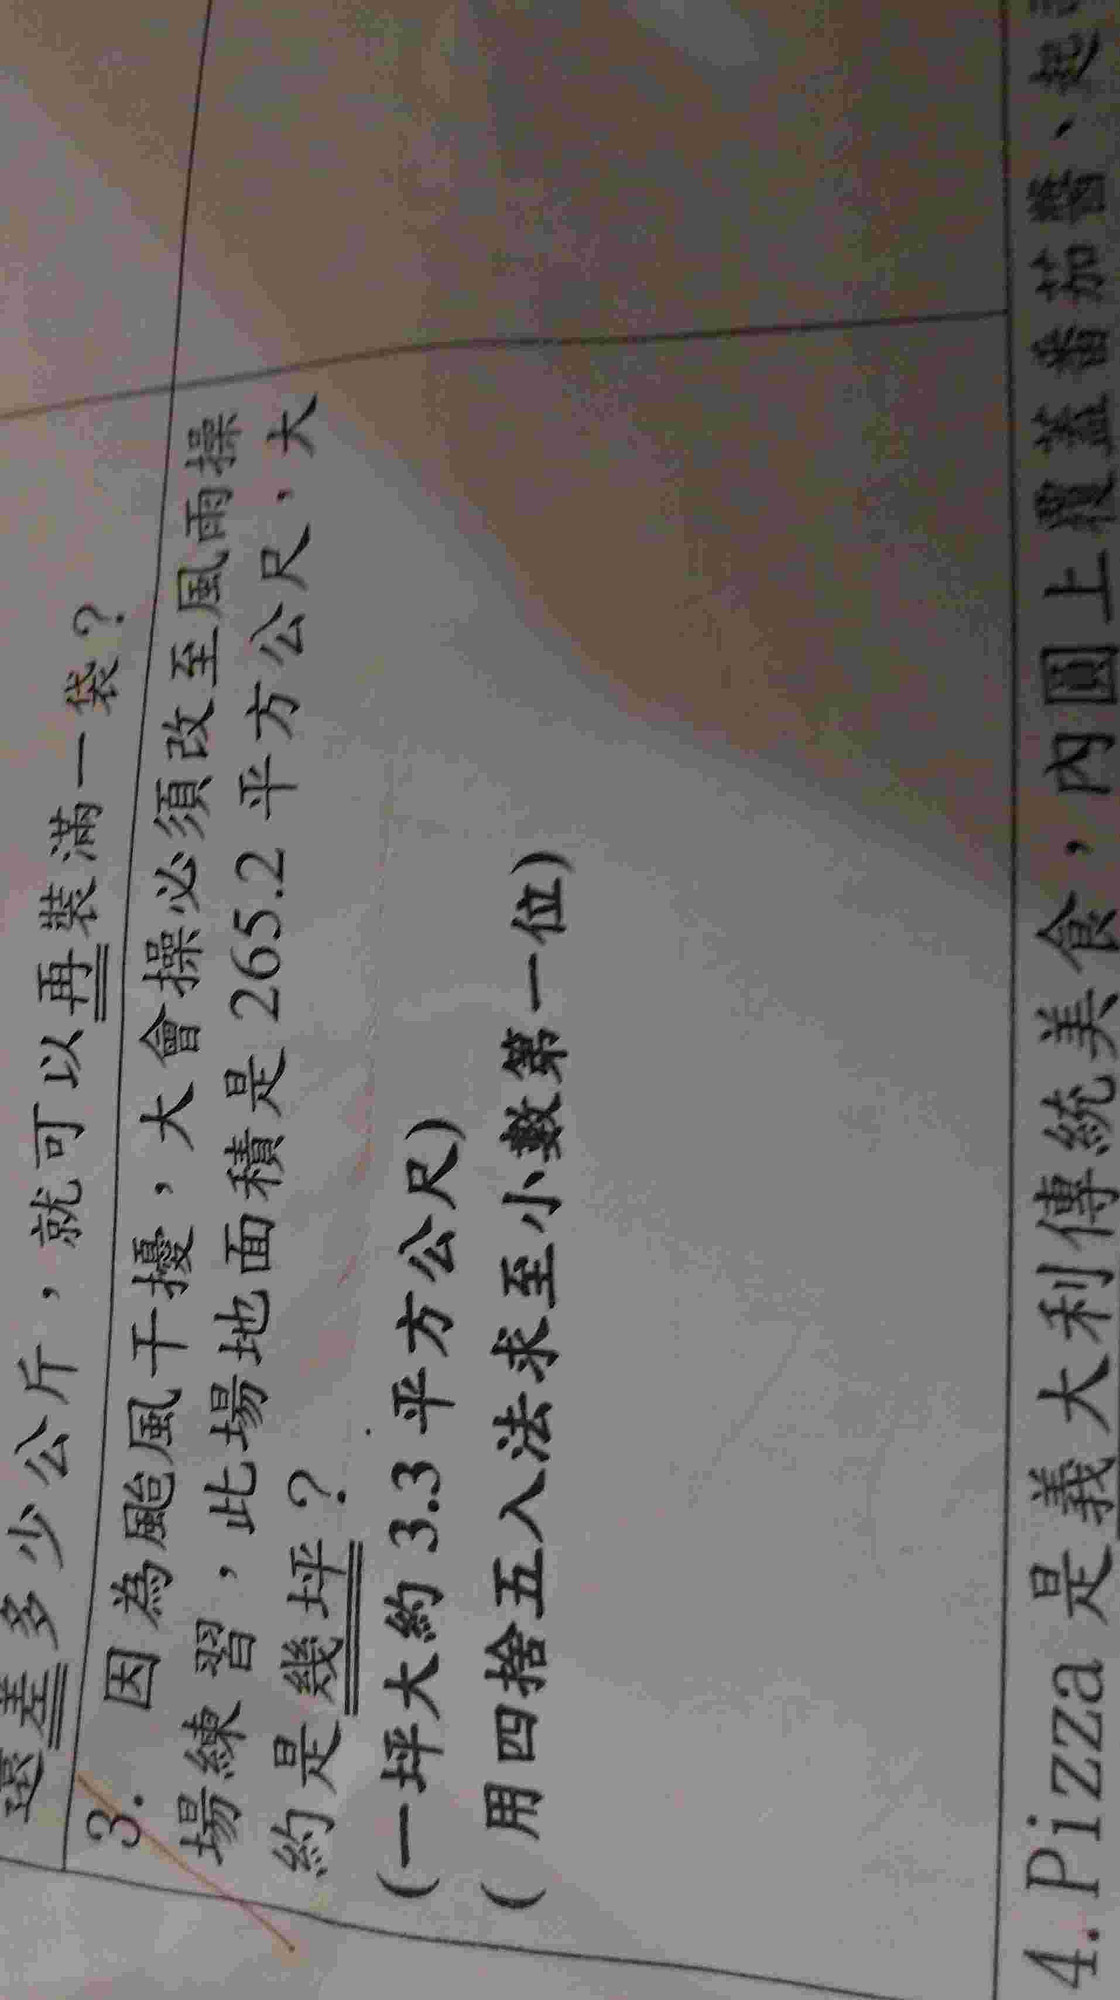 還差多少公斤，就可以再裝滿一袋？
3. 因為颱風干擾，大會操必須改至風雨操
場練習，此場地面積是 265.2 平方公尺，大
約是幾坪？
(一坪大約 3.3 平方公尺)
( 用四捨五入法求至小數第一位)
4. Pizza 是義大利傳統美食，內圓上覆蓋番茄醬、起